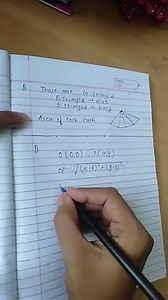 Q.
There are 10 triangles
5 triangle →
5 triangle →
Area of each cloth
Q.
O (0,0) , P(x,y)
OP = √(x-0)² + (y-0)²